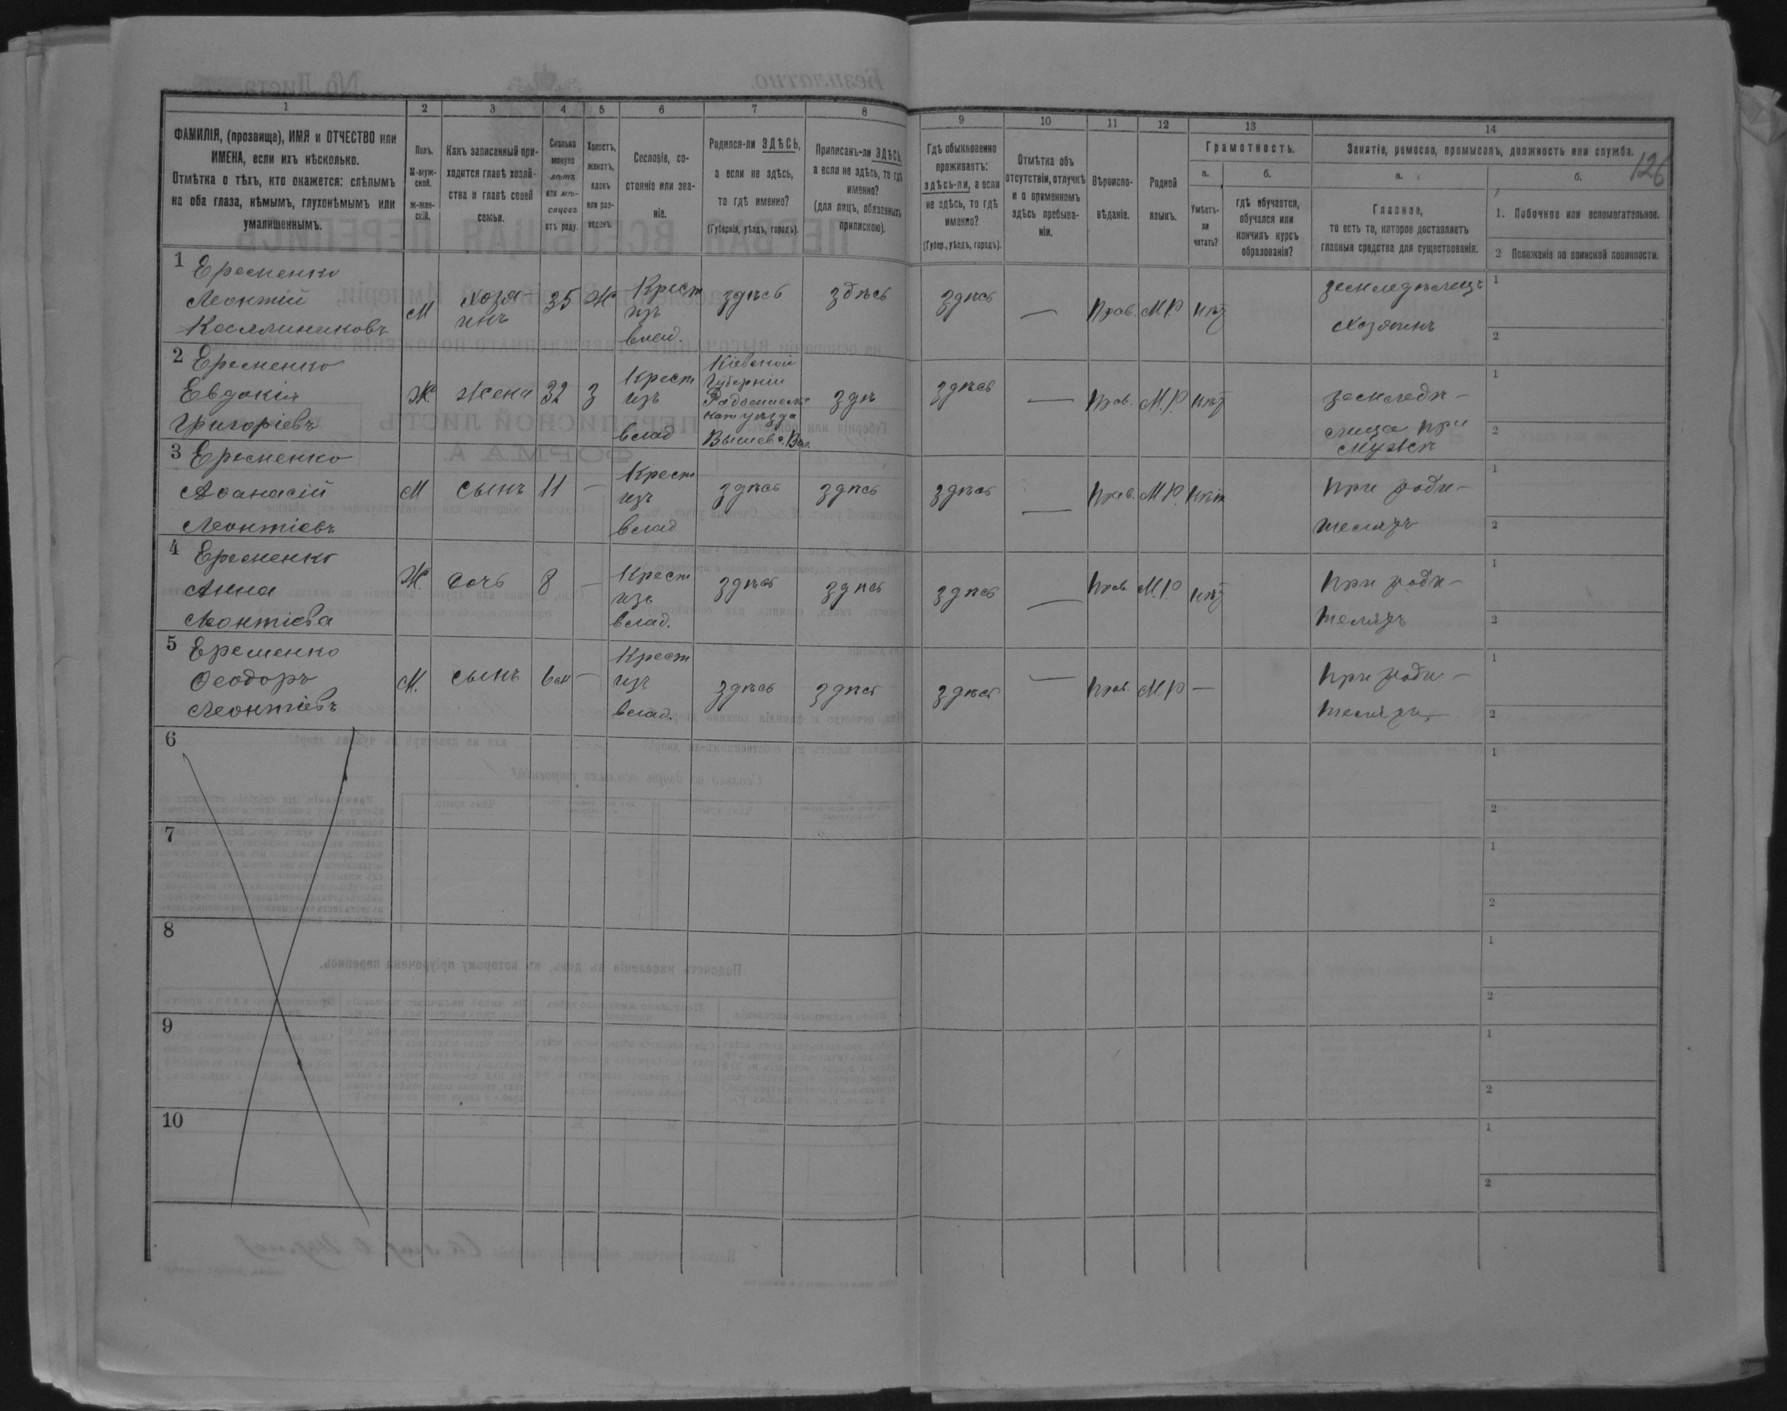 1 2 3 4 5 6 7 8 9 10 11 12 13 14
126
ФАМИЛІЯ, (прозвище), ИМЯ и ОТЧЕСТВО или
ИМЕНА, если ихъ нѣсколько.
Отмѣтка о тѣхъ, кто окажется: слѣпымъ
на оба глаза, нѣмымъ, глухонѣмымъ или
умалишеннымъ.
Полъ.
М-муж-
ской.
ж-жен-
скій.
Какъ записанный при-
ходится главѣ хозяй-
ства и главѣ своей
семьи.
Сколько
минуло
лѣтъ
или мѣ-
сяцевъ
отъ роду.
Холостъ,
женатъ,
вдовъ
или раз-
веденъ.
Сословіе, со-
стояніе или зва-
ніе.
Родился-ли ЗДѢСЬ,
а если не здѣсь,
то гдѣ именно?
(Губернія, уѣздъ, городъ).
Приписанъ-ли ЗДѢСЬ,
а если не здѣсь, то гдѣ
именно?
(для лицъ, обязанныхъ
припискою).
Гдѣ обыкновенно
проживаетъ:
здѣсь-ли, а если
не здѣсь, то гдѣ
именно?
(Губер., уѣздъ, городъ).
Отмѣтка объ
отсутствіи, отлучкѣ
и о временномъ
здѣсь пребыва-
ніи.
Вѣроиспо-
вѣданіе.
Родной
языкъ.
Грамотность.
а.
Умѣетъ-
ли
читать?
б.
гдѣ обучается,
обучался или
кончилъ курсъ
образованія?
Занятія, ремесло, промыселъ, должность или служба.
а.
Главное,
то есть то, которое доставляетъ
главныя средства для существованія.
б.
1. Побочное или вспомогательное.
2 Положеніе по воинской повинности.
1 Еременко
Леонтій
М
хозя
инъ
35
Ж
Крест
изъ
влад.
здѣсь
здѣсь
здѣсь
—
Прав.
М.Р
нѣт
земледѣлецъ
хозяинъ
1
2
2 Еременко
Евдокія
Григоріевъ
Ж.
жена
32
З
Крест
изъ
влад
Кіевской
Губерніи
здѣ
здѣсь
—
Прав.
М.Р
нѣт
земледѣ-
лица при
мужѣ
1
2
3 Еременко
Аѳанасій
Леонтіевъ
М
сынъ
11
—
Крест
изъ
влад
здѣсь
здѣсь
здѣсь
—
Прав.
М.Р.
нѣт
При роди-
теляхъ
1
2
4 Еременко
Анна
Леонтіева
Ж.
дочь
8
—
Крест
изъ
влад.
здѣсь
здѣсь
здѣсь
—
Прав.
М.Р
нѣт
При роди-
теляхъ
1
2
5 Еременко
Ѳеодоръ
Леонтіевъ
М.
сынъ
6 м
—
Крест
изъ
влад.
здѣсь
здѣсь
здѣсь
—
Прав.
М.Р
—
При роди-
теляхъ
1
2
6
1
2
7
1
2
8
1
2
9
1
2
10
1
2